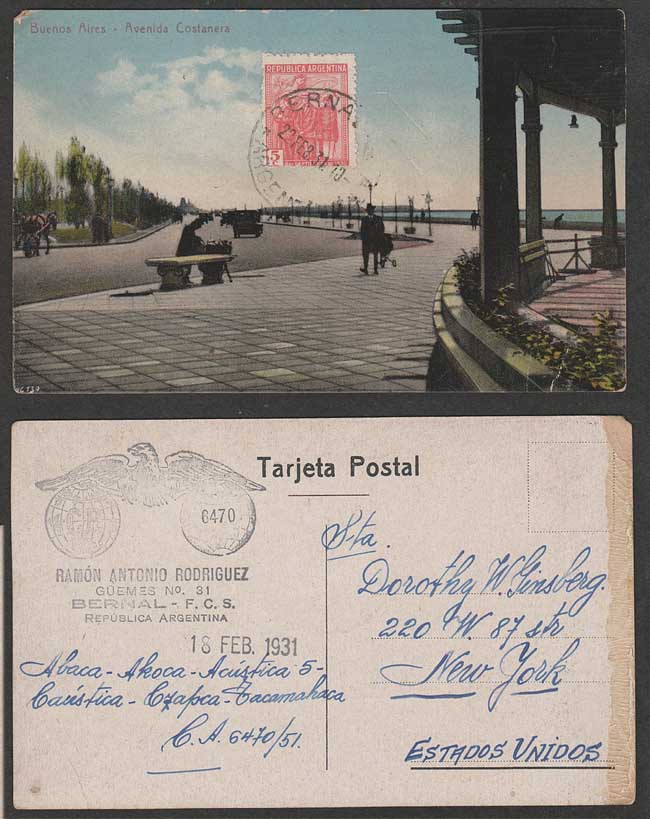 Buenos Aires - Avenida Costanera
REPUBLICA ARGENTINA
5
BERNAL
FEB 31
Tarjeta Postal
6470
RAMÓN ANTONIO RODRIGUEZ
GÜEMES No. 31
BERNAL - F. C. S.
REPÚBLICA ARGENTINA
18 FEB. 1931
Abaca - Akoca - Acústica 5-
Caústica - Czapca - Tacamahaca
C. A. 6470/51.
Sta.
Dorothy W. Ginsberg.
220 W. 87 str
New York
ESTADOS UNIDOS